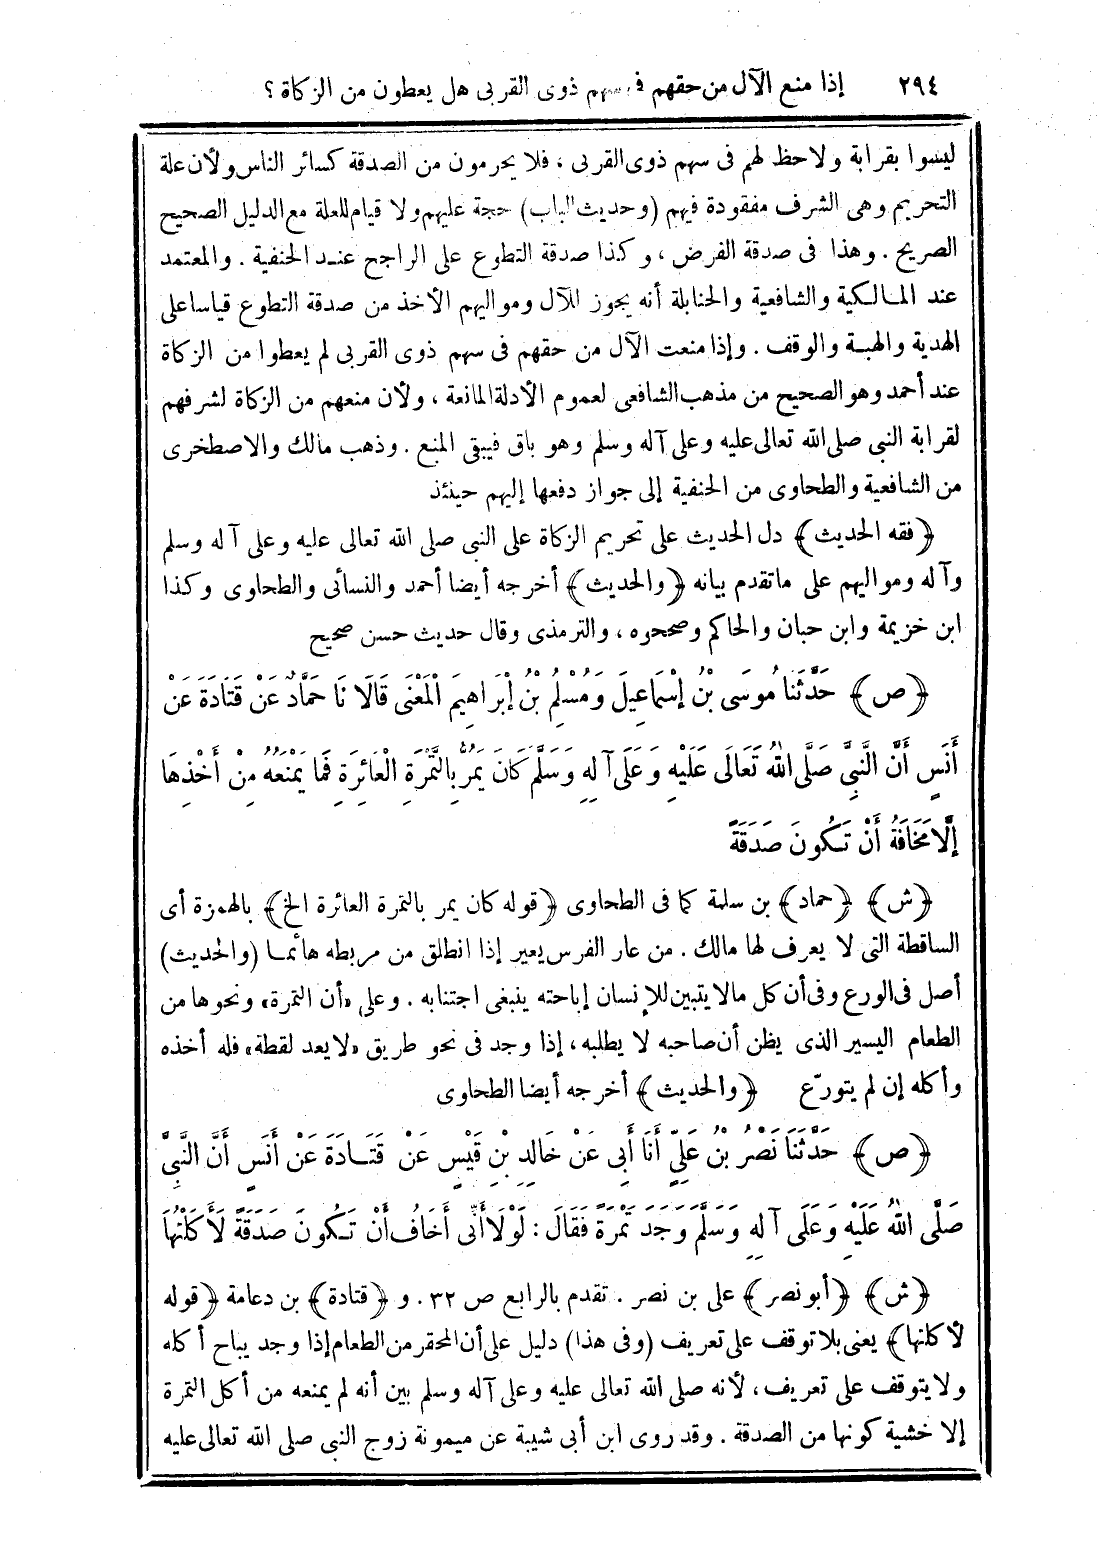 ٢٩٤ إذا منع الآل من حقهم فى سهم ذوى القربى هل يعطون من الزكاة ؟
ليسوا بقرابة ولاحظ لهم فى سهم ذوى القربى ، فلا يحرمون من الصدقة كسائر الناس ولأن علة
التحريم وهى الشرف مفقودة فيهم (وحديث الباب) حجة عليهم ولا قيام للعلة مع الدليل الصحيح
الصريح . وهذا فى صدقة الفرض ، وكذا صدقة التطوع على الراجح عند الحنفية . والمعتمد
عند المالكية والشافعية والحنابلة أنه يجوز للآل ومواليهم الأخذ من صدقة التطوع قياسا على
الهدية والهبة والوقف . وإذا منعت الآل من حقهم فى سهم ذوى القربى لم يعطوا من الزكاة
عند أحمد وهو الصحيح من مذهب الشافعى لعموم الأدلة المانعة ، ولأن منعهم من الزكاة لشرفهم
لقرابة النبى صلى الله تعالى عليه وعلى آله وسلم وهو باق فيبقى المنع . وذهب مالك والاصطخرى
من الشافعية والطحاوى من الحنفية إلى جواز دفعها إليهم حينئذ
﴿فقه الحديث﴾ دل الحديث على تحريم الزكاة على النبى صلى الله تعالى عليه وعلى آله وسلم
وآله ومواليهم على ماتقدم بيانه ﴿والحديث﴾ أخرجه أيضا أحمد والنسائى والطحاوى وكذا
ابن خزيمة وابن حبان والحاكم وصححوه ، والترمذى وقال حديث حسن صحيح
﴿ص﴾ حَدَّثَنَا مُوسَى بْنُ إِسْمَاعِيلَ وَمُسْلِمُ بْنُ إِبْرَاهِيمَ الْمَعْنَى قَالَا نَا حَمَّادٌ عَنْ قَتَادَةَ عَنْ
أَنَسٍ أَنَّ النَّبِيَّ صَلَّى اللهُ تَعَالَى عَلَيْهِ وَعَلَى آلِهِ وَسَلَّمَ كَانَ يَمُرُّ بِالتَّمْرَةِ الْعَائِرَةِ فَمَا يَمْنَعُهُ مِنْ أَخْذِهَا
إِلَّا مَخَافَةُ أَنْ تَكُونَ صَدَقَةً
﴿ش﴾ ﴿حماد﴾ بن سلمة كما فى الطحاوى ﴿قوله كان يمر بالتمرة العائرة الخ﴾ بالهمزة أى
الساقطة التى لا يعرف لها مالك . من عار الفرس يعير إذا انطلق من مربطه هائما (والحديث)
أصل فى الورع وفى أن كل مالا يتبين للإنسان إباحته ينبغى اجتنابه . وعلى «أن التمرة» ونحوها من
الطعام اليسير الذى يظن أن صاحبه لا يطلبه ، إذا وجد فى نحو طريق «لا يعد لقطة» فله أخذه
وأكله إن لم يتورّع ﴿والحديث﴾ أخرجه أيضا الطحاوى
﴿ص﴾ حَدَّثَنَا نَصْرُ بْنُ عَلِيٍّ أَنَا أَبِى عَنْ خَالِدِ بْنِ قَيْسٍ عَنْ قَتَادَةَ عَنْ أَنَسٍ أَنَّ النَّبِيَّ
صَلَّى اللهُ عَلَيْهِ وَعَلَى آلِهِ وَسَلَّمَ وَجَدَ تَمْرَةً فَقَالَ : لَوْلَا أَنِّى أَخَافُ أَنْ تَكُونَ صَدَقَةً لَأَكَلْتُهَا
﴿ش﴾ ﴿أبو نصر﴾ على بن نصر . تقدم بالرابع ص ٣٢. و ﴿قتادة﴾ بن دعامة ﴿قوله
لأكلتها﴾ يعنى بلا توقف على تعريف (وفى هذا) دليل على أن المحقر من الطعام إذا وجد يباح أكله
ولا يتوقف على تعريف ، لأنه صلى الله تعالى عليه وعلى آله وسلم بين أنه لم يمنعه من أكل التمرة
إلا خشية كونها من الصدقة . وقد روى ابن أبى شيبة عن ميمونة زوج النبى صلى الله تعالى عليه